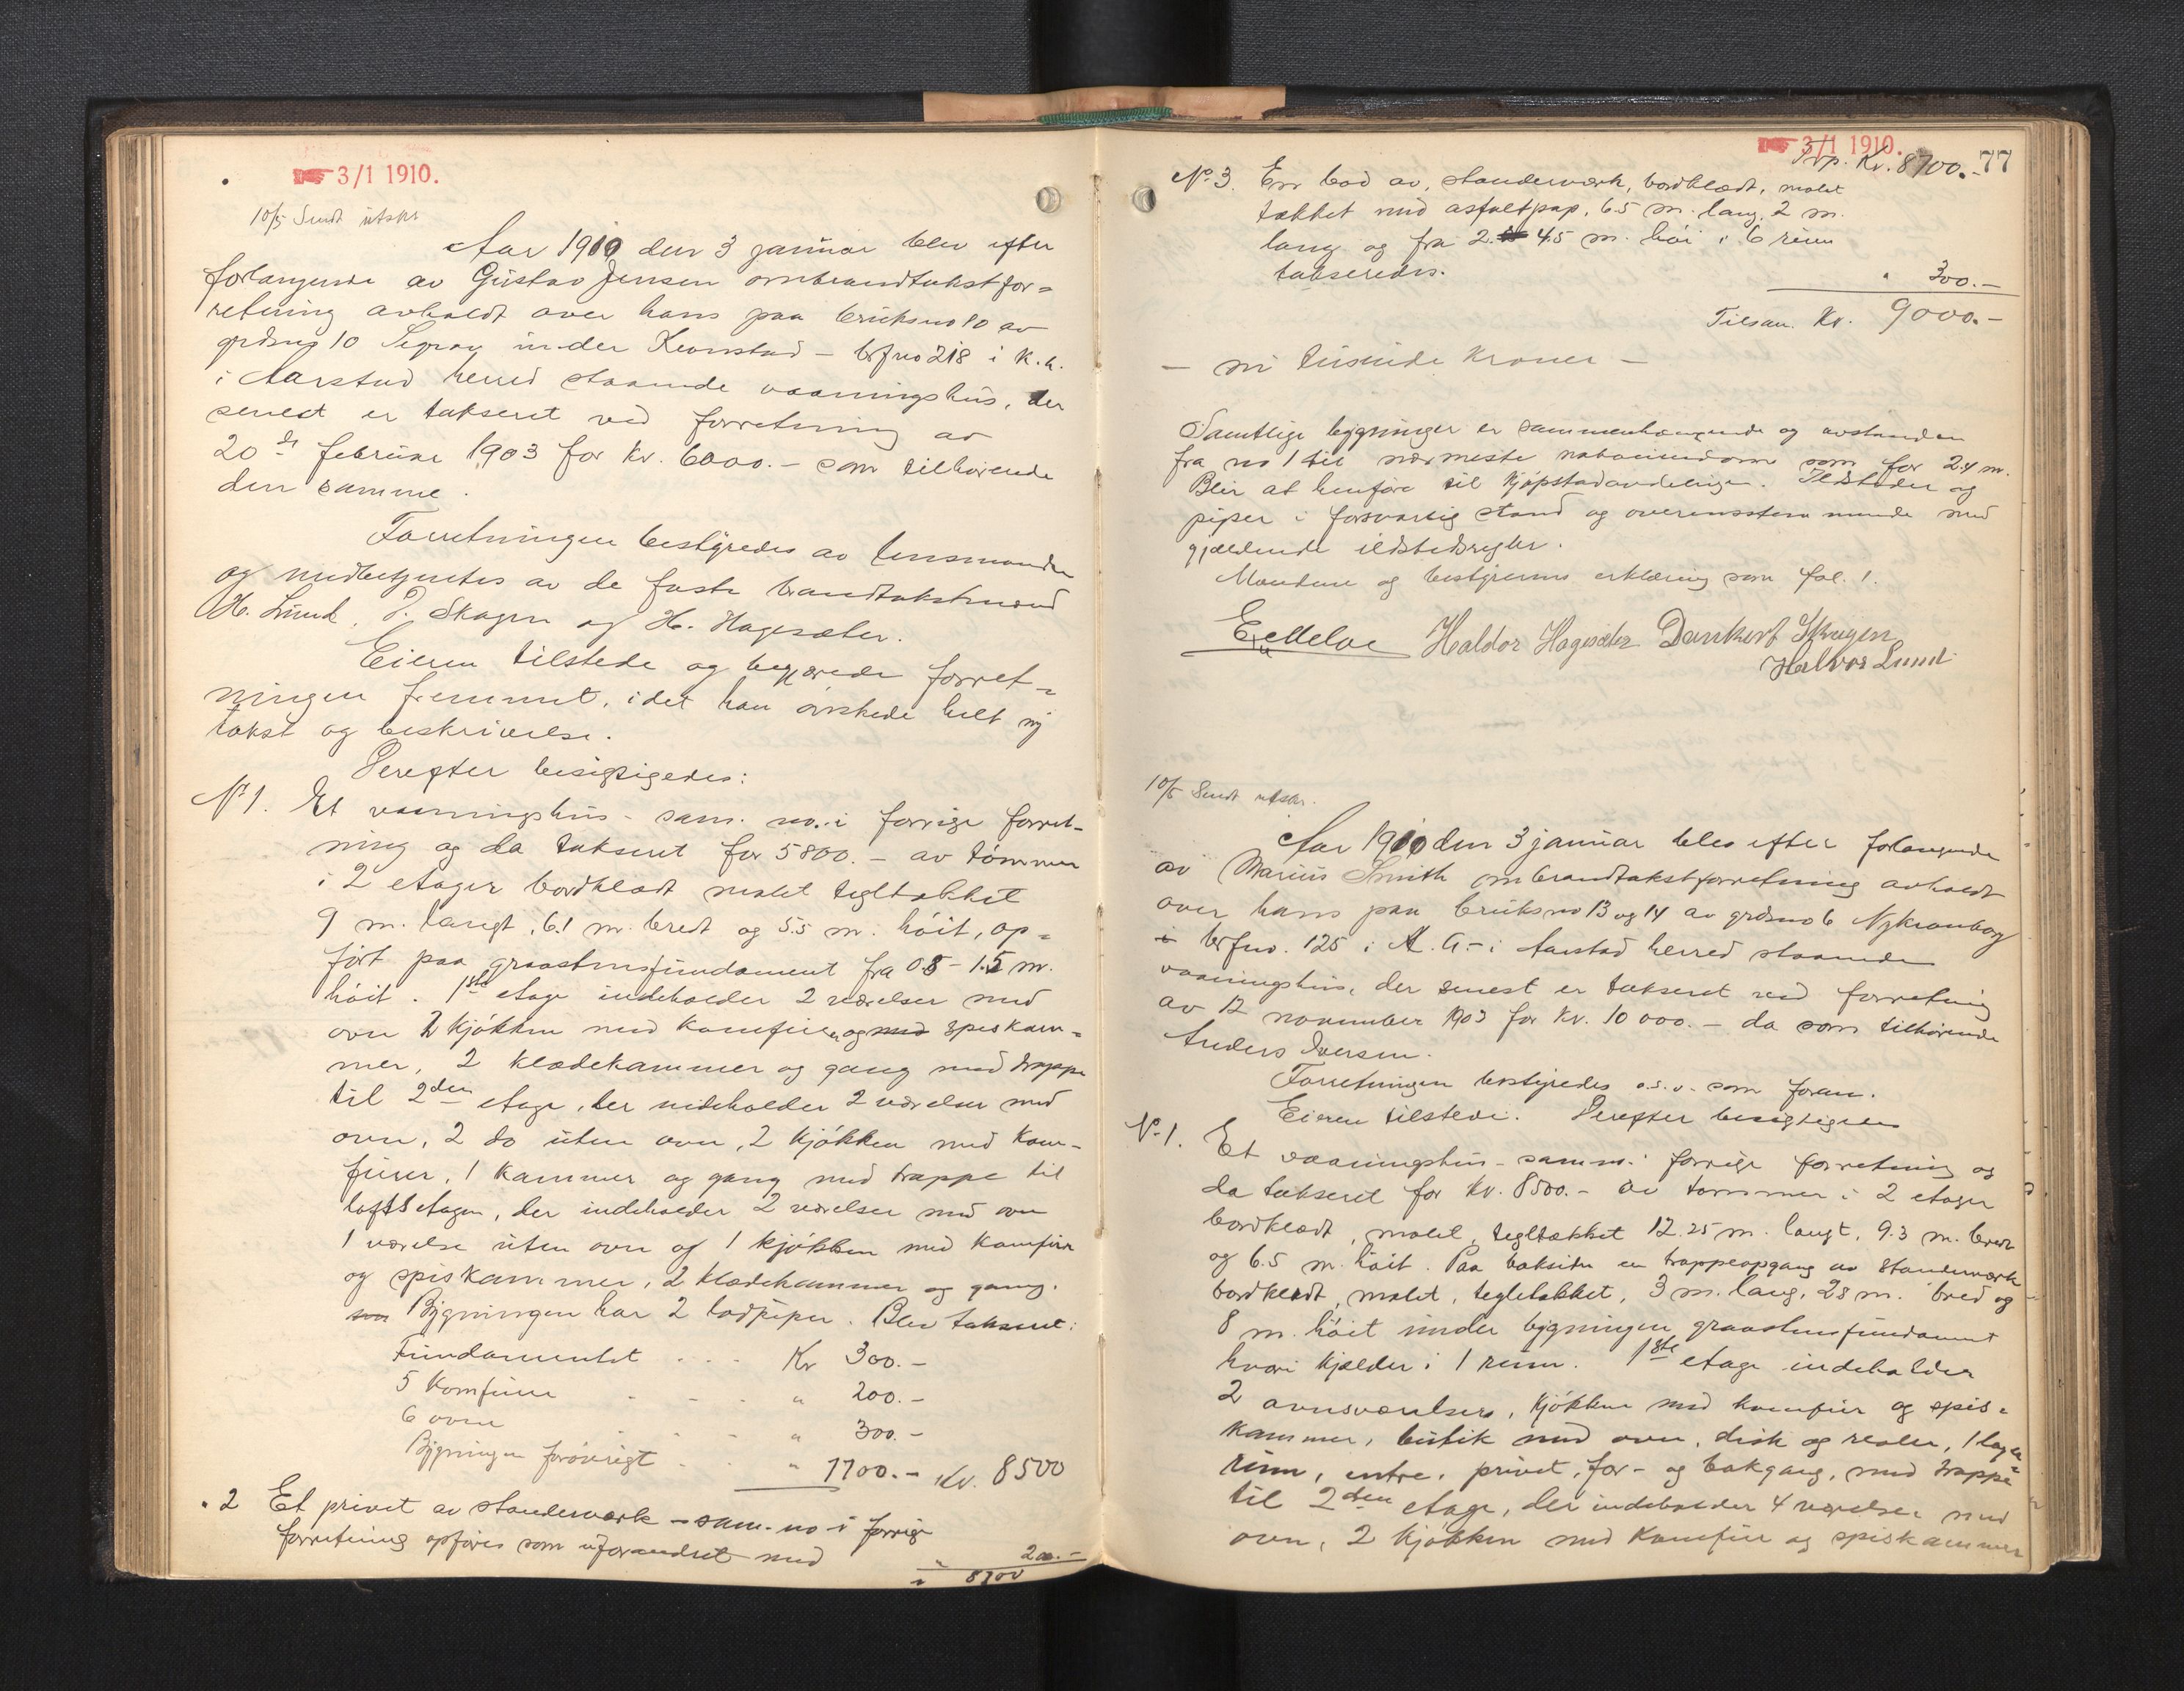 3/1 1910.
10/5 Sendt utskr
Aar 1910 den 3 januar blev efter
forlangende av Gustav Jensen ombrandtakstfor=
retning avholdt over hans paa bruksno 80 av
grdsno 10 under Kronstad - brfno 218 i K. a.
i Aarstad herred staaende vaaningshus, der
senest er takseret ved forretning av
20de februar 1903 for kr. 6000.- som tilhørende
den samme.
Forretningen bestyredes av lensmanden
og medbetjentes av de faste brandtakstmænd
H. Lund, D. Skagen og H. Hagesæter.
Eieren tilstede og begjærede forret=
ningen fremmet, idet han ønskede helt ny
takst og beskrivelse.
Derefter besigtigedes:
No 1. Et vaaningshus - sam. no. i forrige forret-
ning og da takseret for 5800.- av tømmer
i 2 etager bordklædt malet tegltækket
9 m. langt, 6.1 m. bredt og 5.5 m. høit, op=
ført paa graastensfundament fra 0.8 - 1.5 m.
høit. 1ste etage indeholder 2 værelser med
ovn 2 kjøkken med komfurer og med spiskam=
mer, 2 klædekammer og gang med trappe
til 2den etage, der indeholder 2 værelser med
ovn, 2 do uten ovn, 2 kjøkken med kom-
furer, 1 kammer og gang med trappe til
loftsetagen, der indeholder 2 værelser med ovn
1 værelse uten ovn og 1 kjøkken med komfur
og spiskammer, 2 klædekammer og gang.
Bygningen har 2 lodpiper. Blev takseret:
Fundamentet . . . Kr 300.-
5 komfurer . . . " 200.-
6 ovne . . . " 300.-
Bygningen forøvrigt . . " 7700.- Kr. 8500
" 2 Et privet av standerværk - sam. no i forrige
forretning opføres som uforandret med " 200.-
8700
3/1 1910.
Trp. Kr. 8700.- 77
No 3. En bod av standerværk, bordklædt, malet
tækket med asfaltpap, 6.5 m. lang, 2 m.
lang og fra 2. 4.5 m. høi i 6 rum
takseredes. " 300.-
Tilsam. Kr. 9000.-
- ni tusinde kroner -
Samtlige bygninger er sammenhængende og avstanden
fra no 1 til nærmeste naboeiendom som før 2.4 m.
Blir at henføre til kjøpstadavdelingen. Ildsteder og
piper i forsvarlig stand og overensstemmende med
gjældende ildstedsregler.
Mændenes og bestyrerens erklæring som fol. 1.
Haldor Hagesæter Dankert Skagen
Halvor Lund
10/5 Sendt utskr.
Aar 1910 den 3 januar blev efter forlangende
av Marius Smith ombrandtakstforretning avholdt
over hans paa bruksno 13 og 14 av grdsno 6 Ny Kronborg
i brfno. 125 i A. a. - i Aarstad herred staaende
vaaningshus, der senest er takseret ved forretning
av 12 november 1903 for Kr. 10 000.- da som tilhørende
Anders Iversen.
Forretningen bestyredes o.s.v. som foran.
Eieren tilstede. Derefter besigtigedes
No 1. Et vaaningshus - sam no. i forrige forretning og
da takseret for kr. 8500.- av tømmer i 2 etager
bordklædt, malet, tegltækket 12.25 m. langt, 9.3 m. bredt
og 6.5 m. høit. Paa baksiden en trappeopgang av standerværk
bordklædt, malet, tegltækket, 3 m. lang, 2.8 m. bred og
8 m. høit under bygningen graastensfundament
hvori kjælder i 1 rum. 1ste etage indeholder
2 ovnsværelser, kjøkken med komfur og spis=
kammer, butik med ovn, disk og reoler, 1 lager=
rum, entre, privet, for- og bakgang, med trappe
til 2den etage, der indeholder 4 værelser med
ovn, 2 kjøkken med komfur og spiskammer